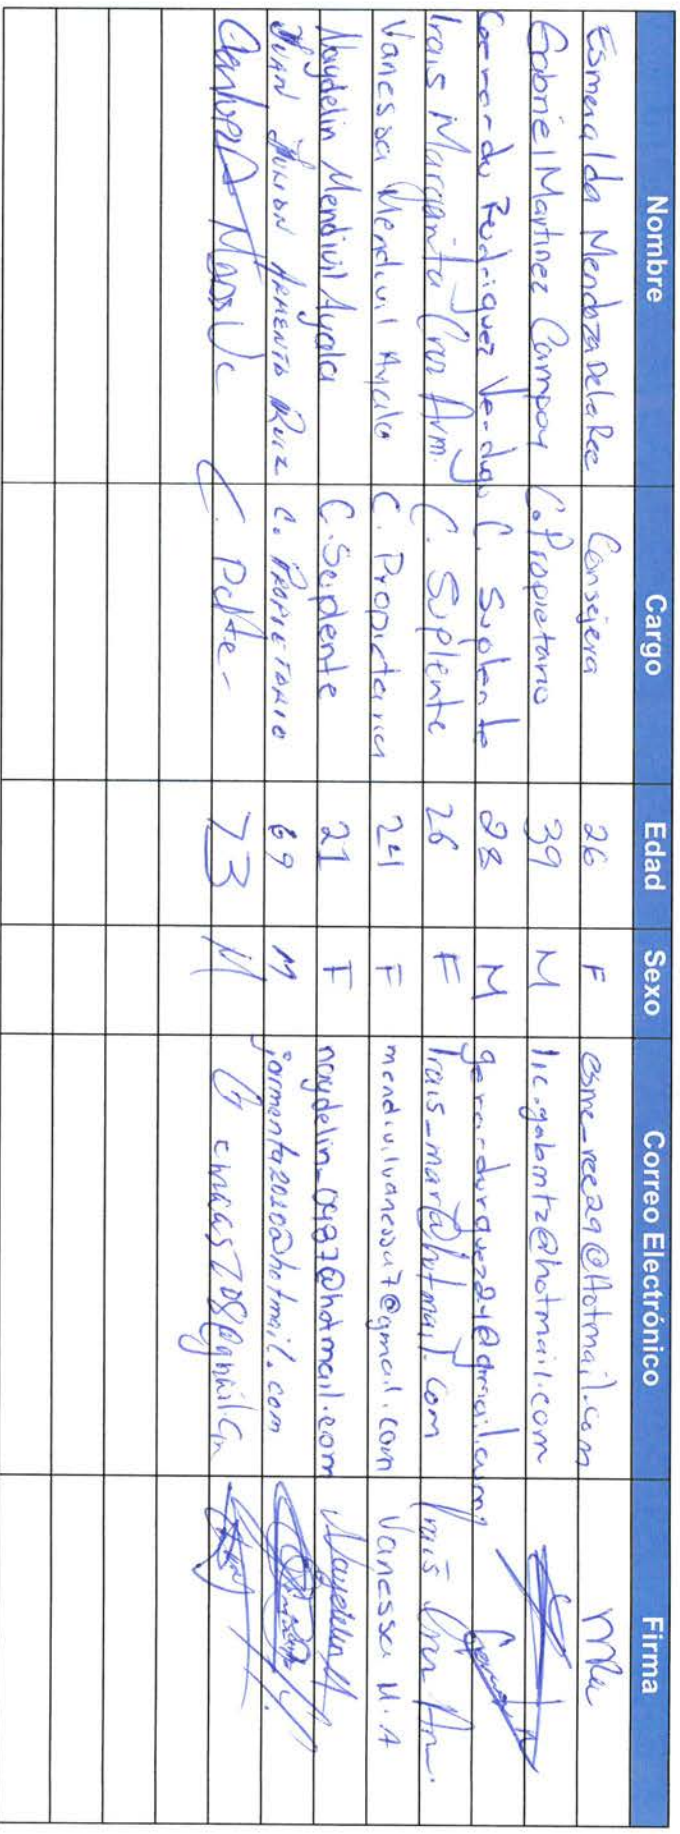 Nombre Cargo Edad Sexo Correo Electrónico Firma
Esmeralda Mendoza De la Ree Consejera 26 F esme_ree29@Hotmail.com MRee
Gabriel Martinez Campoy C. Propietario 39 M lic.gabmtz@hotmail.com
Gerardo Rodriguez Verdugo C. Suplente 28 M
Irais Margarita Cruz Arm. C. Suplente 26 F Irais_mar@hotmail.com Irais Cruz Arm.
Vanessa Mendivil Ayala C. Propietaria 24 F mendivilvanessa7@gmail.com Vanessa M.A
Naydelin Mendivil Ayala C. Seplente 21 F naydelin_0987@hotmail.com Naydelin M
JUAN JULIAN ARMENTA RUIZ C. PROPIETARIO 69 M jarmenta2020@hotmail.com
C. Pdte- 73 M